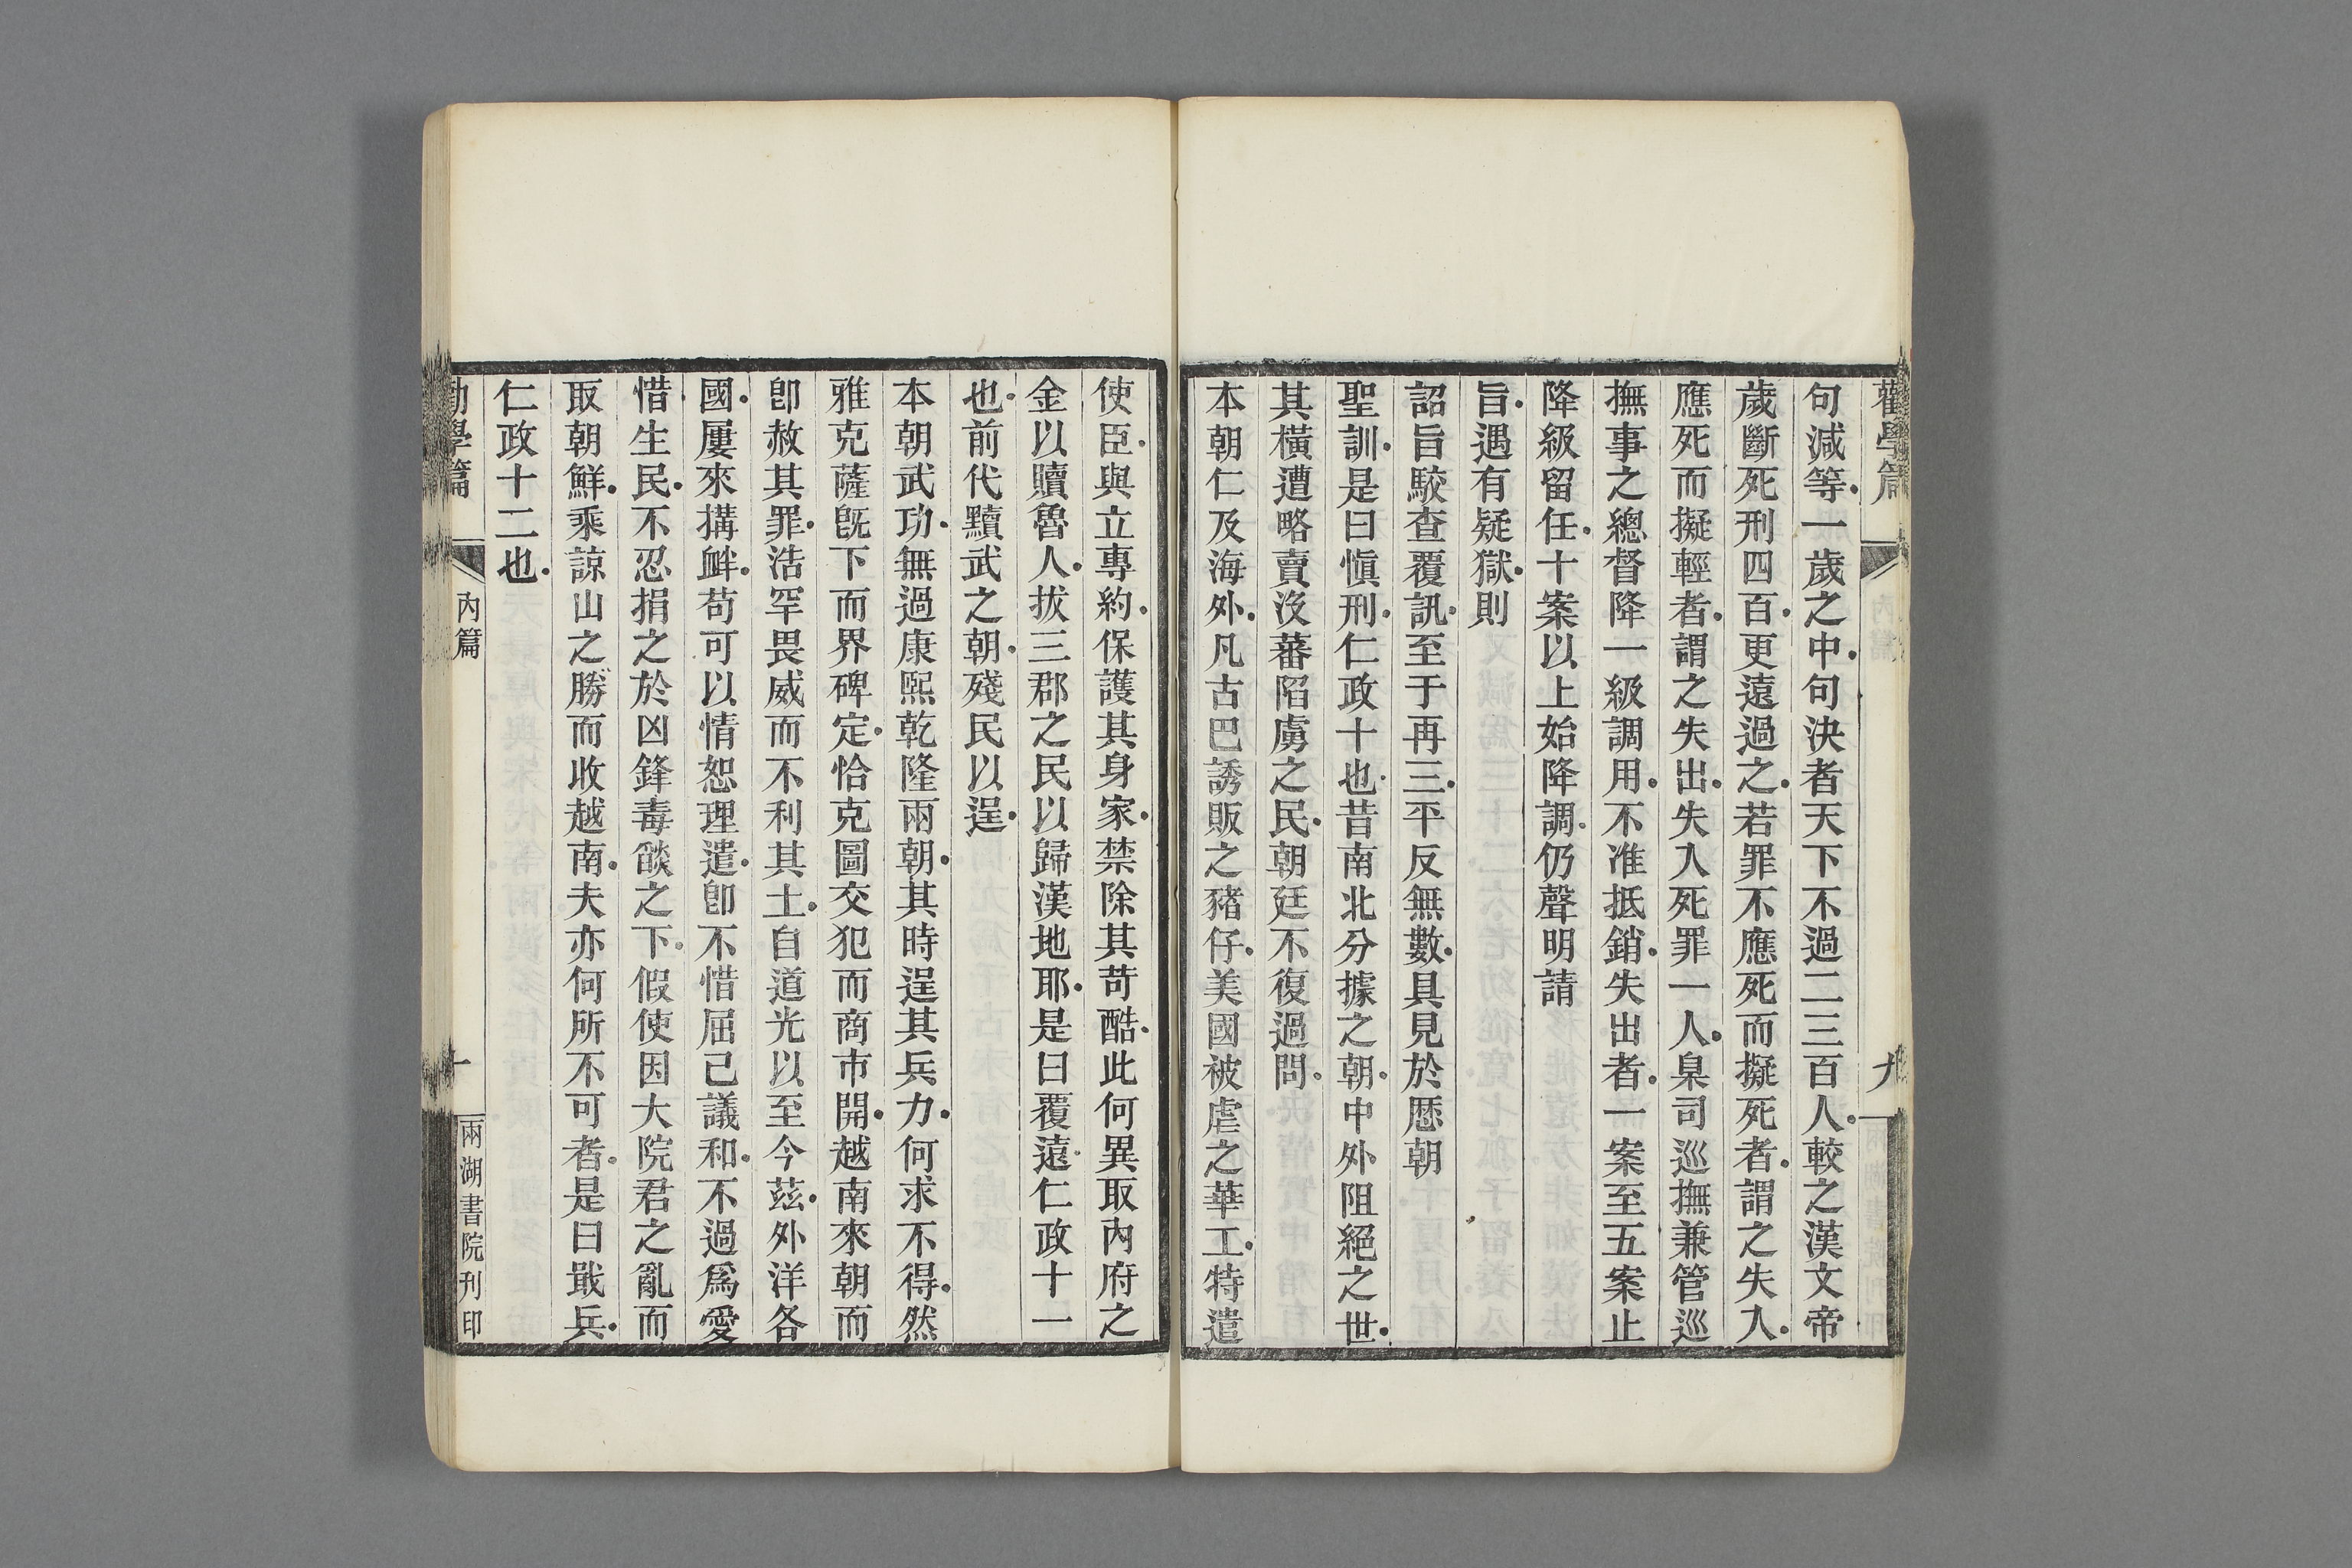 勸學篇 內篇 九
句減等一歲之中句決者天下不過二三百人較之漢文帝
歲斷死刑四百更遠過之若罪不應死而擬死者謂之失入
應死而擬輕者謂之失出失入死罪一人臬司巡撫兼管巡
撫事之總督降一級調用不准抵銷失出者一案至五案止
降級留任十案以上始降調仍聲明請
旨遇有疑獄則
詔旨駮查覆訊至于再三平反無數具見於歷朝
聖訓是曰愼刑仁政十也昔南北分據之朝中外阻絕之世
其橫遭略賣沒蕃陷虜之民朝廷不復過問
本朝仁及海外凡古巴誘販之豬仔美國被虐之華工特遣
使臣與立專約保護其身家禁除其苛酷此何異取內府之
金以贖魯人拔三郡之民以歸漢地耶是曰覆遠仁政十一
也前代黷武之朝殘民以逞
本朝武功無過康熙乾隆兩朝其時逞其兵力何求不得然
雅克薩既下而界碑定恰克圖交犯而商市開越南來朝而
卽赦其罪浩罕畏威而不利其土自道光以至今茲外洋各
國屢來搆衅苟可以情恕理遣卽不惜屈己議和不過爲愛
惜生民不忍捐之於凶鋒毒燄之下假使因大院君之亂而
取朝鮮乘諒山之勝而收越南夫亦何所不可者是曰戢兵
仁政十二也
勸學篇 內篇 十 兩湖書院刊印